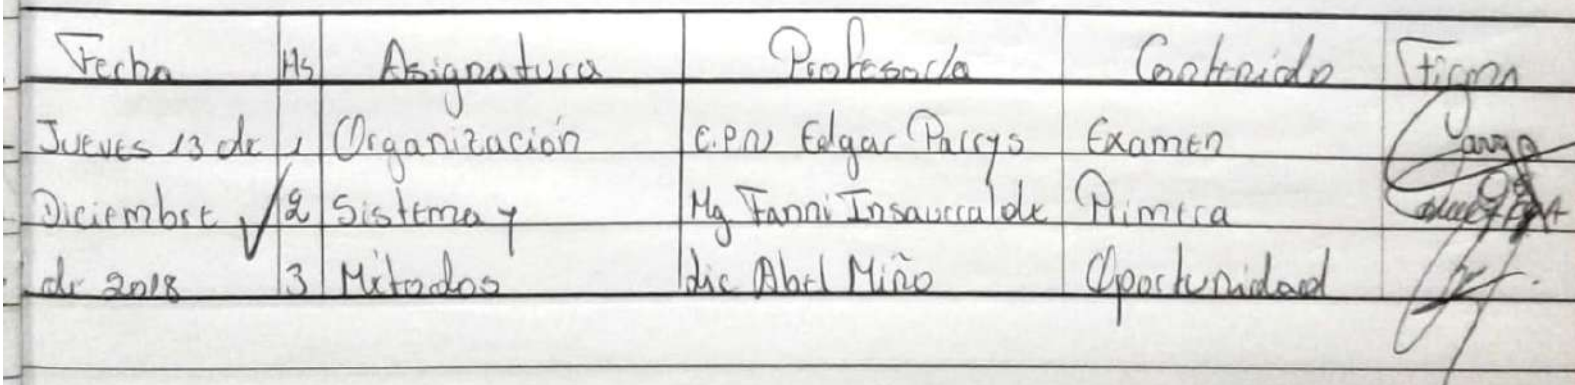 Fecha Hs Asignatura Profesor/a Contenido Firma
Jueves 13 de 1 Organización C.P.N Edgar Parrys Examen
Diciembre ✓ 2 Sistema y Mg Fanni Insaurralde Primera
de 2018 3 Métodos Lic Abel Miño Oportunidad